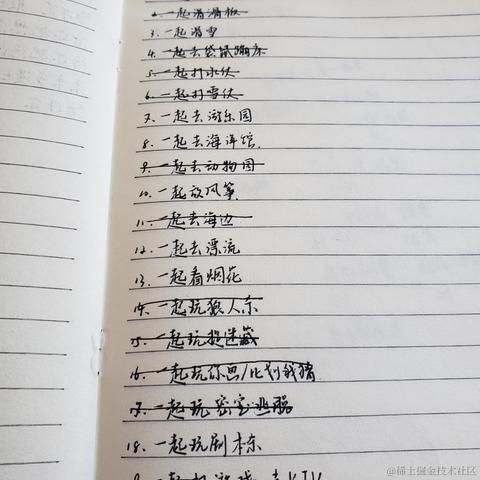 2. 一起滑滑板
3. 一起滑雪
4. 一起去袋鼠蹦床
5. 一起打水仗
6. 一起打雪仗
7. 一起去游乐园
8. 一起去海洋馆.
9. 一起去动物园
10. 一起放风筝.
11. 一起去海边
12. 一起去漂流
13. 一起看烟花
14. 一起玩狼人杀
15. 一起玩捉迷藏
16. 一起玩你画/比划我猜
17. 一起玩密室逃脱
18. 一起玩剧本杀
一起打游戏 去KTV
@稀土掘金技术社区